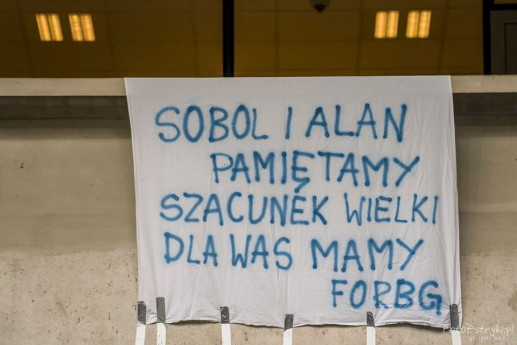 SOBOL I ALAN
PAMIĘTAMY
SZACUNEK WIELKI
DLA WAS MAMY
FORBG
FotoPstryki.pl